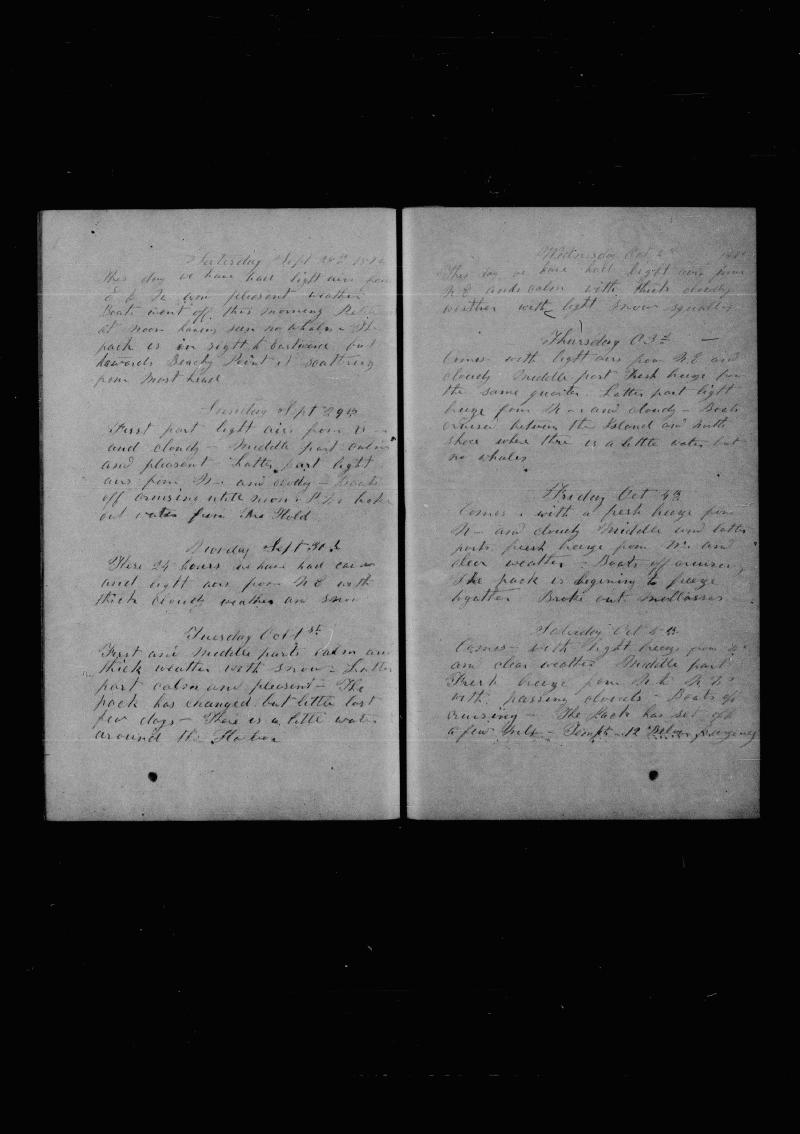 Saturday Sept 28th
This day we have had light airs from
E & N and pleasent weather
Boats went off this morning
at noon having seen no whales - The
pack is in sight to Eastward but
towards Beachy Point it scattering
from Mast head
Sunday Sept 29th
First part light airs from N -
and cloudy - Middle part calm
and pleasent Latter part light
airs from N - and cloudy - Boats
off cruising untile noon. P.M. broke
out water from the Hold
Monday Sept 30th
These 24 hours we have had calm
and light airs from N E with
thick cloudy weather and snow
Tuesday Oct 1st
First and Middle parts calm and
thick weather with snow - Latter
part calm and pleasent - The
pack has changed but little last
few days - There is a little water
around the Harbor
Wednesday Oct 2d
This day we have had light airs from
N E and calm with thick cloudy
weather with light snow squalls
Thursday O 3d -
Comes with light airs from N.E and
cloudy Middle part Fresh breeze from
the same quarter. Latter part light
breeze from N - and cloudy - Boats
cruisen between the Island and
shore where there is a little water but
no whales
Friday Oct 4th
Comes - with a fresh breeze from
N - and cloudy Middle and latter
parts fresh breeze from N. and
clear weather - Boats off cruisen
The pack is begining to freeze
together Broke out mollasses
Saturday Oct 5th
Comes - with light breeze from
and clear weather Middle part
Fresh breeze from N.E
with passing clouds - Boats off
cruising - The pack has set off
a few Miles - Temptr - 12 Below freezing